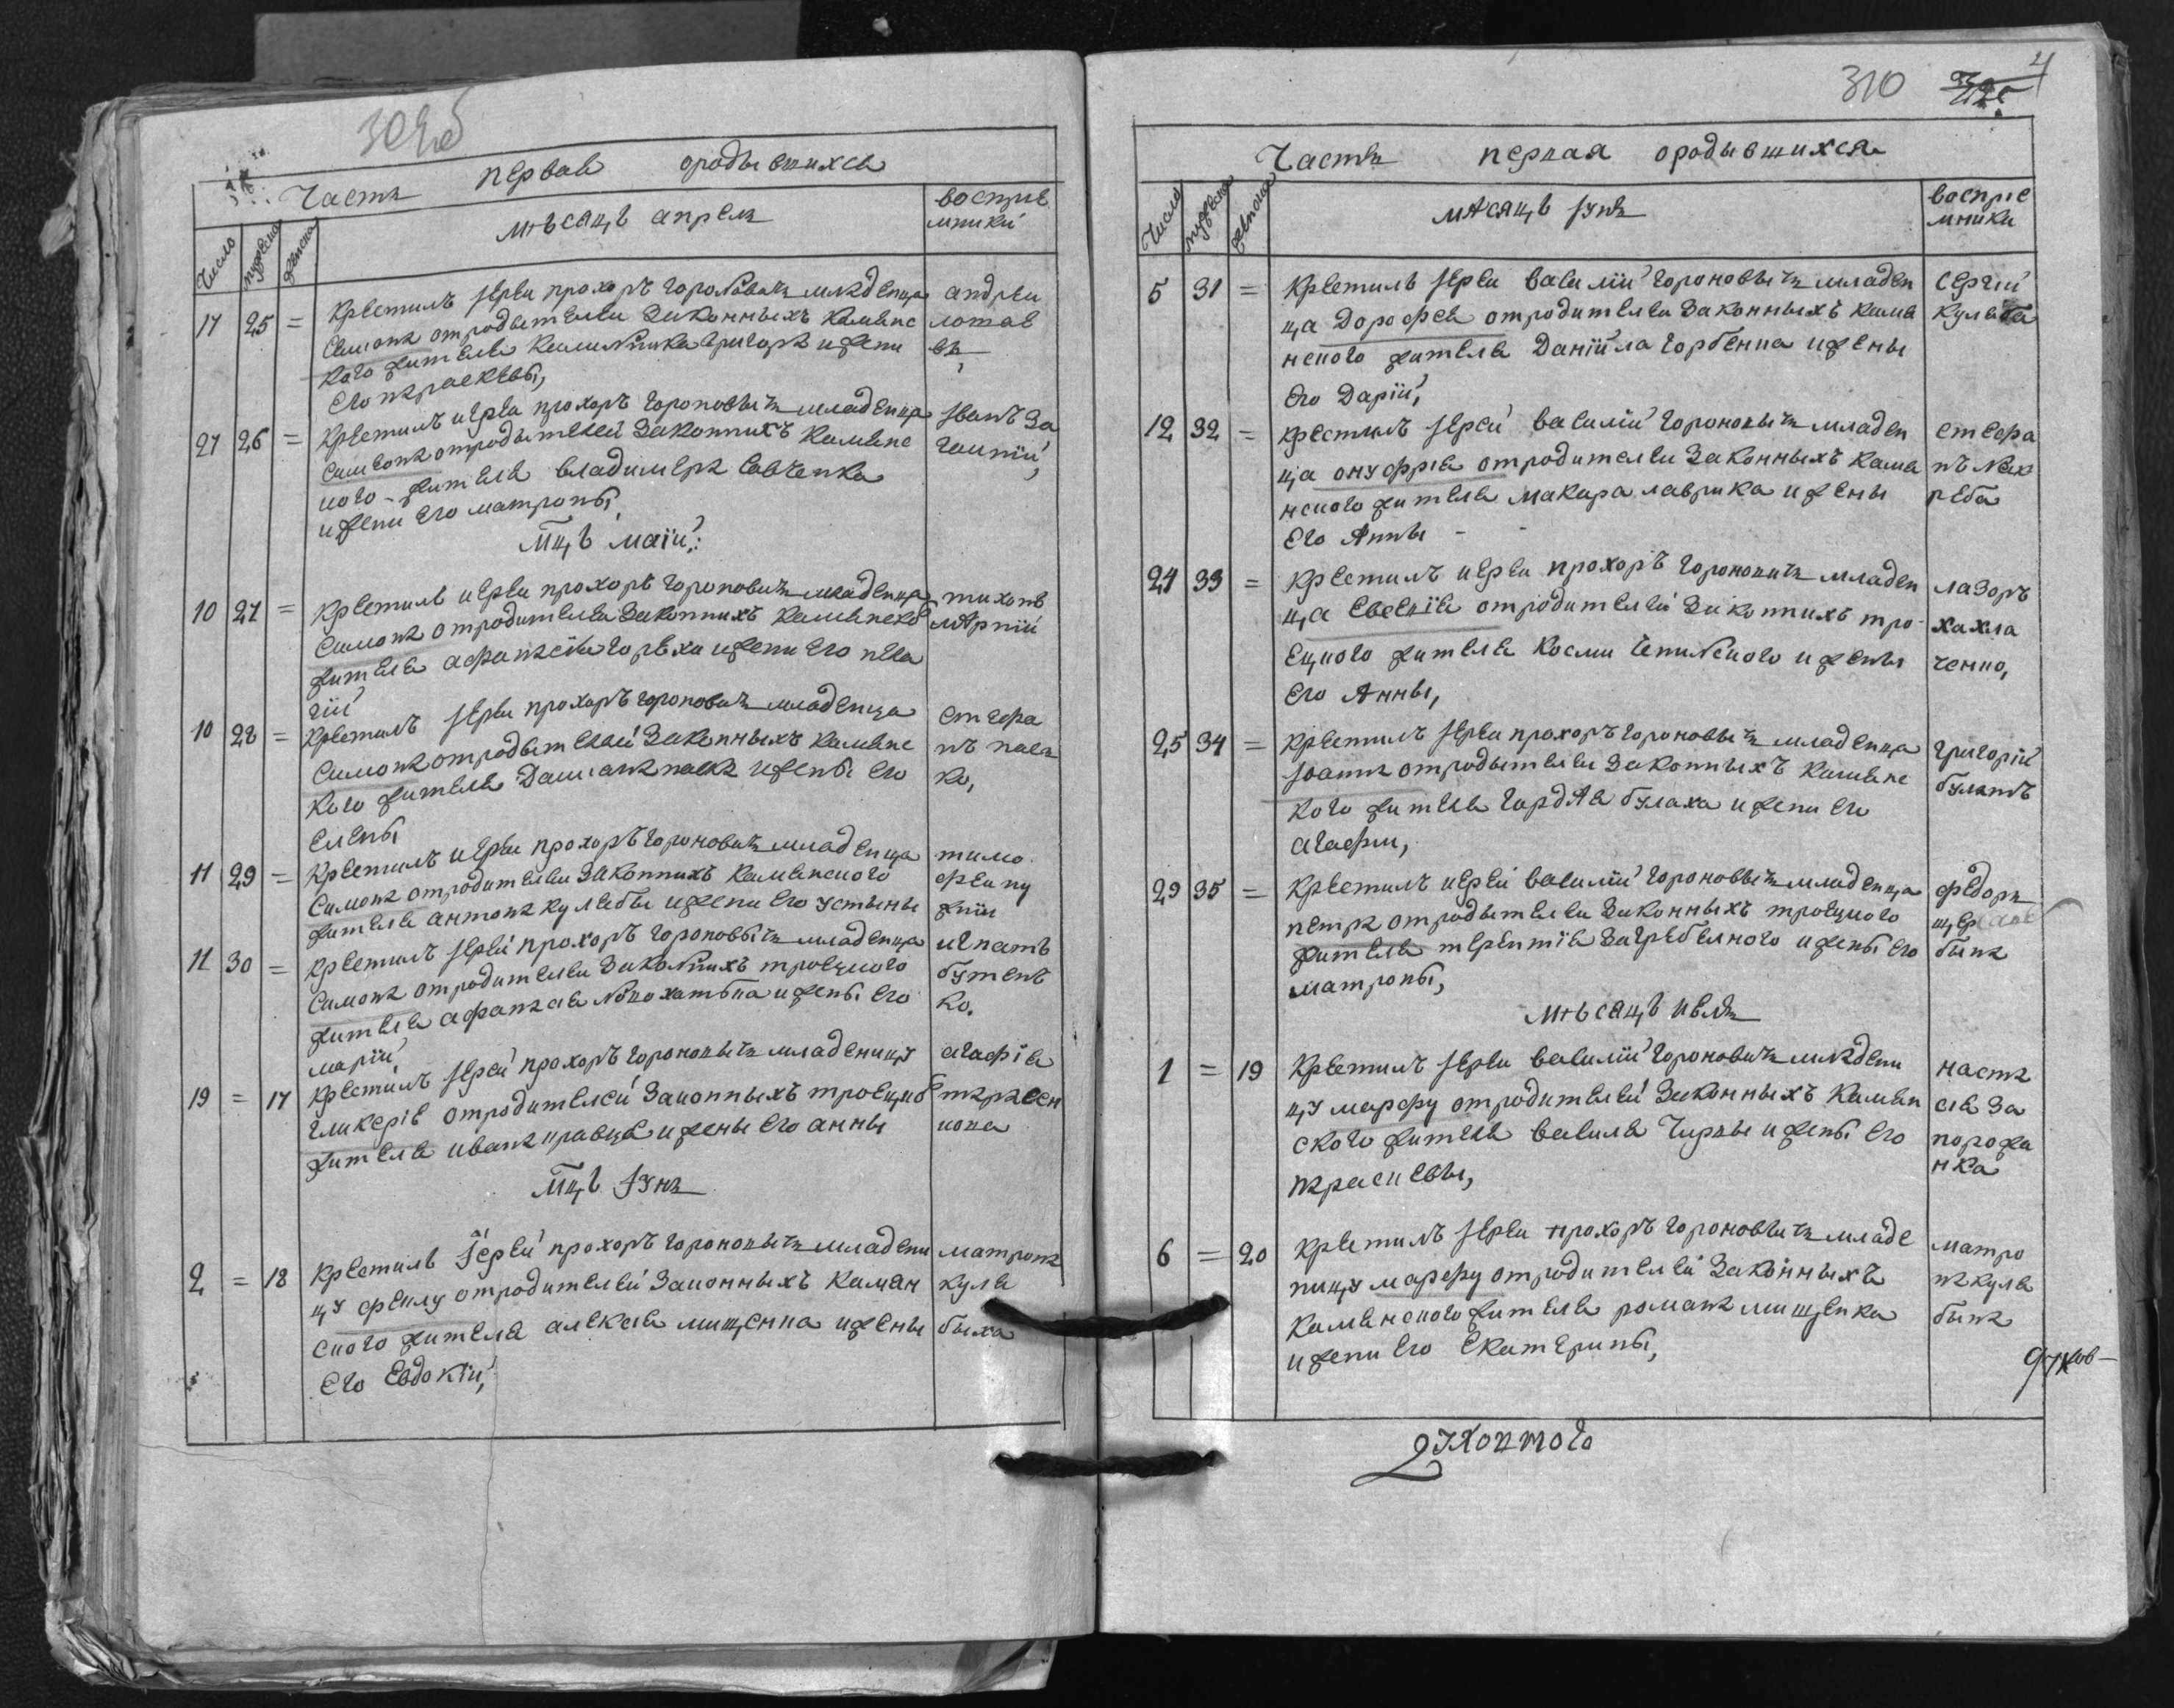 309об
Часть первая ородывшихся
Число мужеска женска
мѣсяцъ апрель
восприе
мники
17 25 = Крестилъ іерей прохоръ горонович младенца
Симона отродытелей законныхъ камене
кого жителя Григоря и жени
его параскевы,
андреи
лошав
27 26 = Крестилъ иерей прохоръ горонович младенца
Симеона отродытелей законнихъ камене
кого жителя владимера Савченка
и жени его матроны
іванъ За
Мцъ маій:
10 27 = Крестилъ иерей прохоръ горонович младенца
Симона отродителей законнихъ каменско
жителя афанасія горѣха и жени его пела
гіи
тихонъ
10 28 = Крестилъ іерей прохоръ горонович младенца
Симона отродытелей законныхъ камене
кого жителя Дамиана паска и жены его
елены
стефа
нъ пась
ко,
11 29 = Крестилъ иерей прохоръ горонович младенца
Симона отродителей законнихъ каменского
жителя антона кулебы и жени его устыны
тимо
фей пу
11 30 = Крестилъ іерей прохоръ горонович младенца
Симона отродителей законнихъ троецкого
жителя афанасия и жены его
маріи,
игнатъ
бутен
ко.
19 = 17 Крестилъ іерей прохоръ горонович младеницу
гликерія отродителей законныхъ троецко
жителя ивана правца и жены его анны
агафія
Мцъ іунь
2 = 18 Крестилъ іерей прохоръ горонович младени
цу феклу отродителей законныхъ камен
ского жителя алексея мищенка и жены
его Евдокіи,
матрона
куле
быха
310
4
Часть первая ородывшихся
Число мужеска женска
мѣсяцъ іунь
восприе
мники
5 31 = Крестилъ іерей василій горонович младен
ца Дорофея отродителей законныхъ каме
нского жителя Даніила горбенка и жены
его Даріи,
Сергій
кулѣба
12 32 = Крестилъ іерей василій горонович младен
ца онуфрія отродителей законныхъ каме
нского жителя макара лаврика и жены
его Анны -
стефа
нъ нех
реба
24 33 = Крестилъ иерей прохоръ горонович младен
ца Евсевія отродителей законнихъ тро
ецкого жителя косми и жены
его Анны,
лазоръ
хахла
ченко,
25 34 = Крестилъ іерей прохоръ горонович младенца
іоанна отродытелей законныхъ камене
кого жителя гордѣя булаха и жени его
агафіи,
григорій
булатъ
29 35 = Крестилъ иерей василій горонович младенца
петра отродытелей законныхъ троецкого
жителя терентія загребелного и жены его
матроны,
федора
щер
бына
мѣсяцъ июль
1 = 19 Крестилъ іерей василій горонович младени
цу марфу отродителей законныхъ камен
ского жителя василя Чирвы и жены его
параскевы,
наста
сія За
порожа
нка
6 = 20 Крестилъ іерей прохоръ горонович младе
ницу марфу отродителей законныхъ
каменского жителя романа мищенка
и жени его Екатерины,
матро
на куле
быха